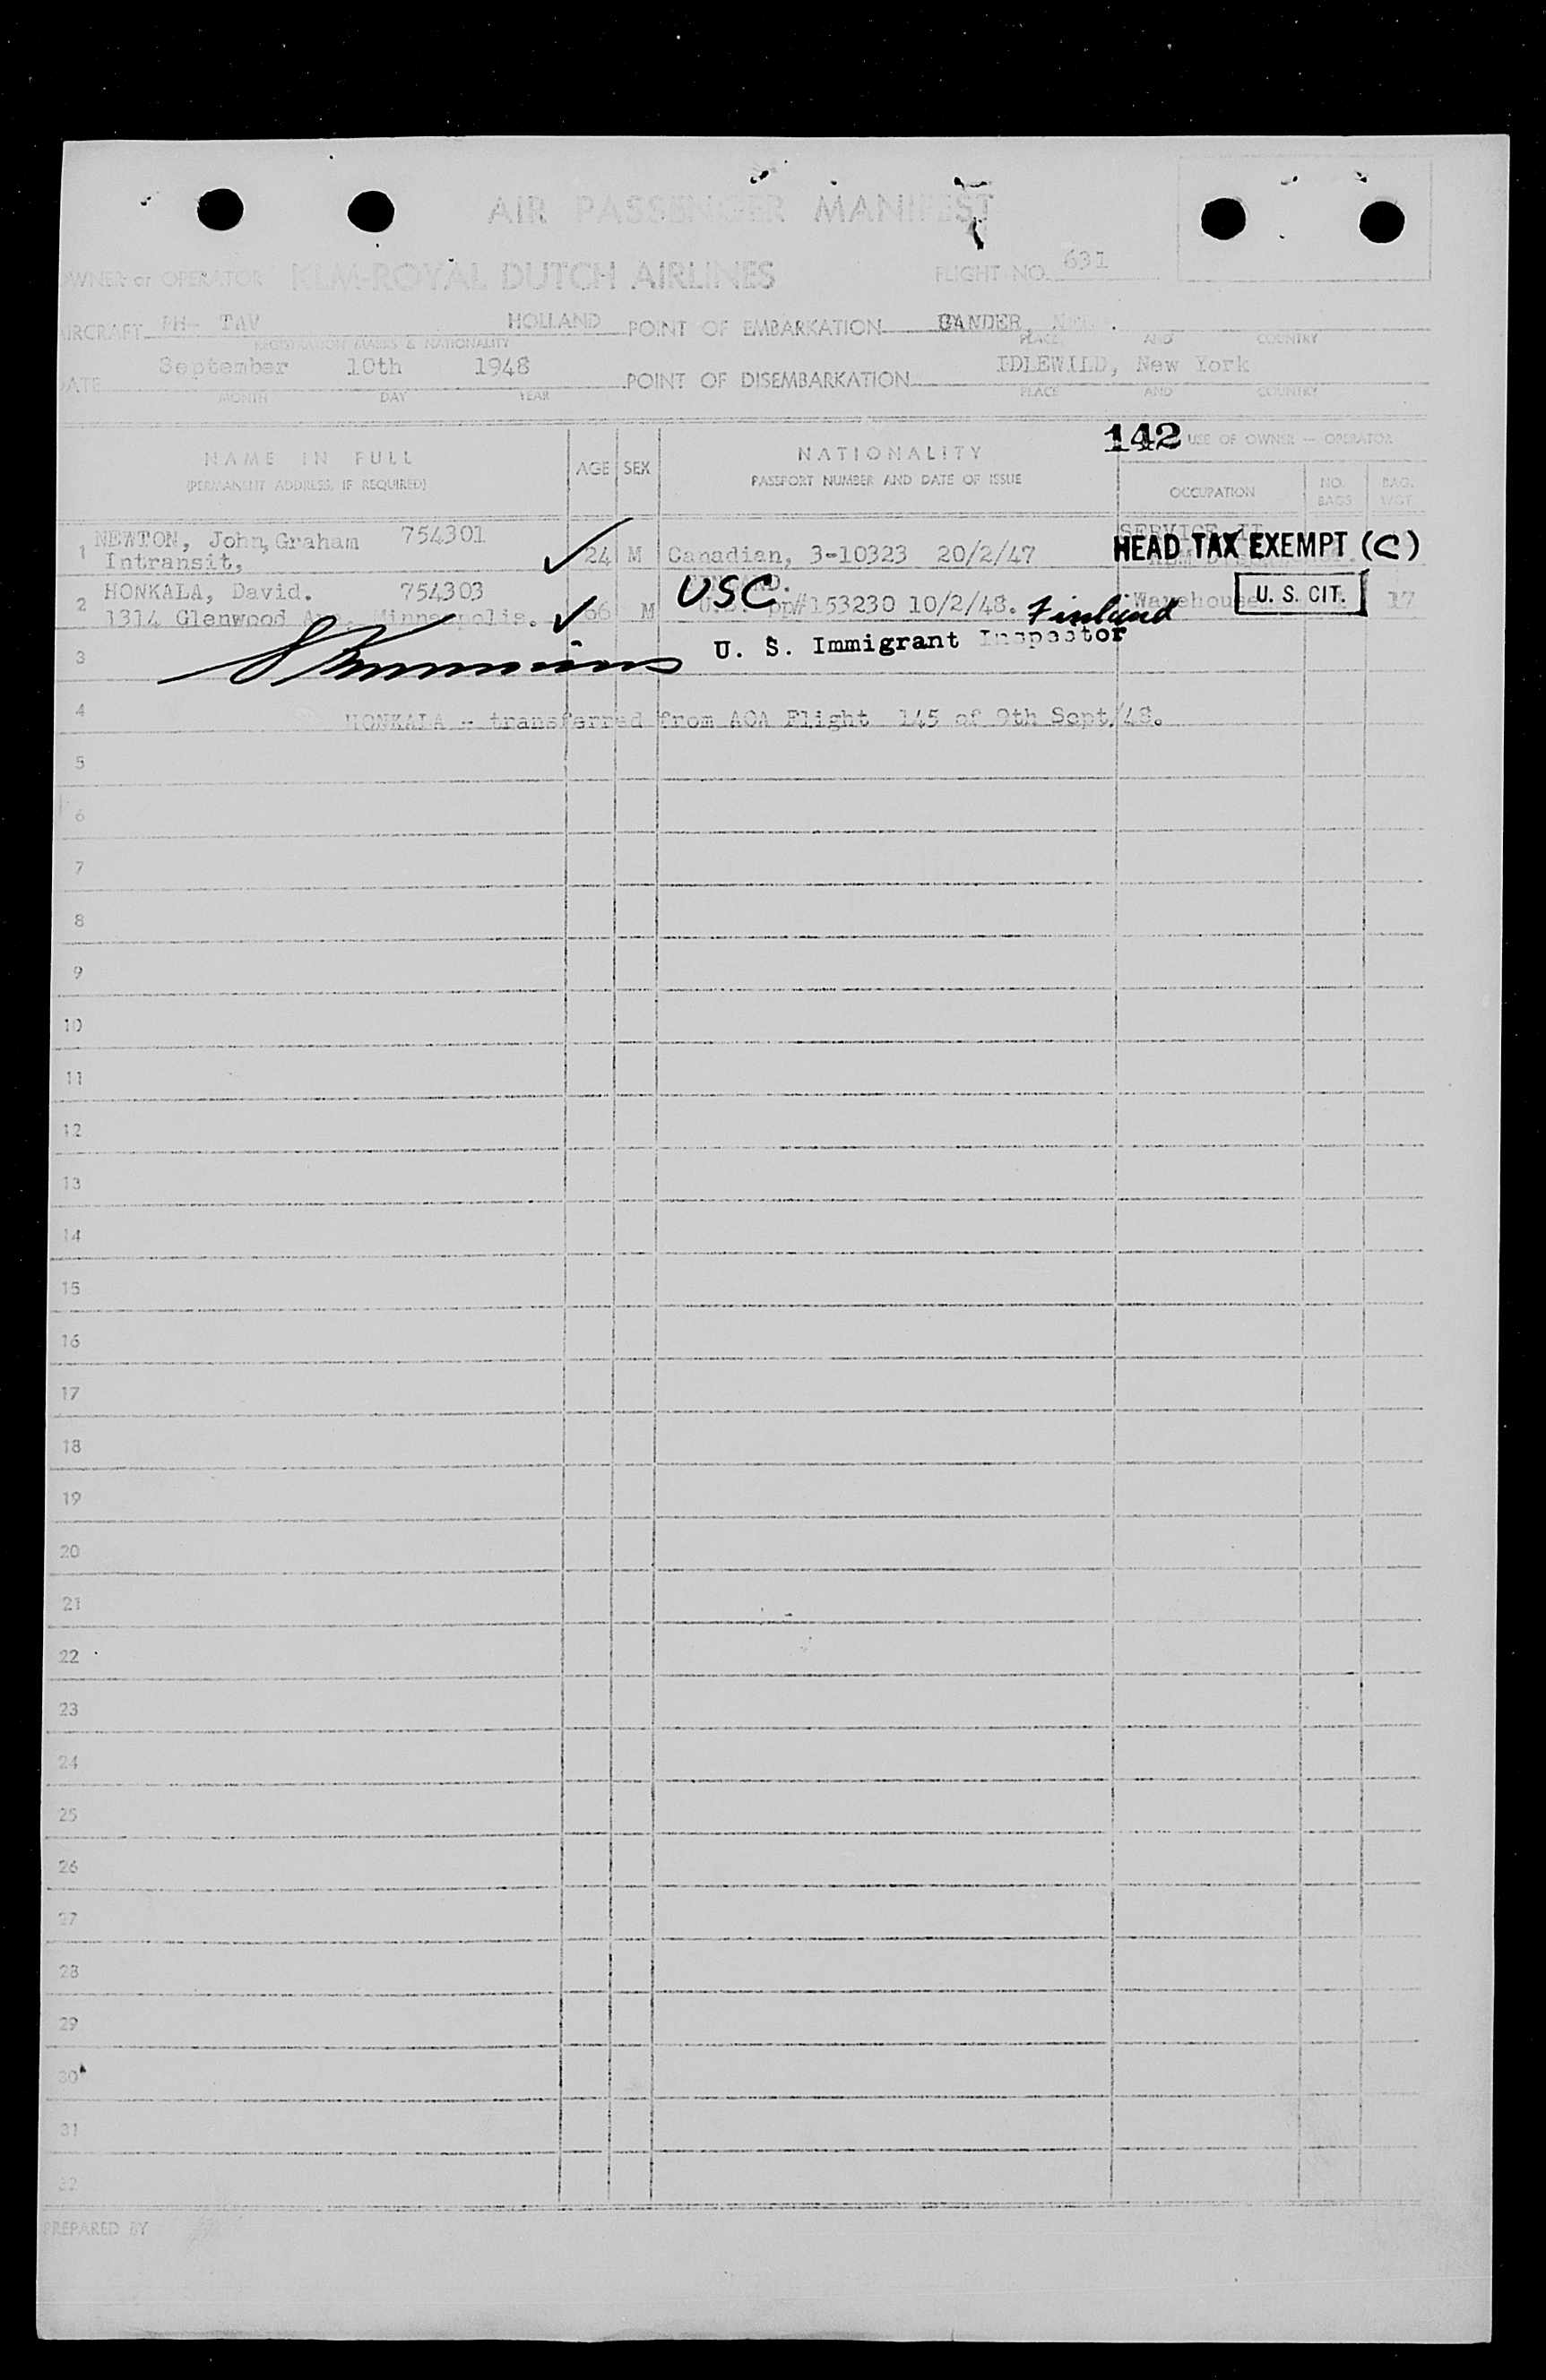 AIR PASSENGER MANIFEST
OWNER or OPERATOR KLM-ROYAL DUTCH AIRLINES FLIGHT NO. 631
AIRCRAFT PH- TAV HOLLAND POINT OF EMBARKATION GANDER,
REGISTRATION MARKS & NATIONALITY PLACE AND COUNTRY
DATE September 10th 1948 POINT OF DISEMBARKATION IDLEWILD, New York
MONTH DAY YEAR PLACE AND COUNTRY
142 USE OF OWNER -- OPERATOR
NAME IN FULL AGE SEX NATIONALITY
(PERMANENT ADDRESS, IF REQUIRED) PASSPORT NUMBER AND DATE OF ISSUE OCCUPATION NO. BAGS BAG. WGT.
1 NEWTON, John, Graham 754301 SERVICE
Intransit, 24 M Canadian, 3-10323 20/2/47 HEAD TAX EXEMPT (C)
2 HONKALA, David. 754303 USC
1314 Glenwood Ave. Minneapolis. 66 M pp#153230 10/2/48. Finland Warehouse U. S. CIT. 17
3 U. S. Immigrant Inspector
4 HONKALA - transferred from AOA Flight 145 of 9th Sept/48.
5
6
7
8
9
10
11
12
13
14
15
16
17
18
19
20
21
22
23
24
25
26
27
28
29
30
31
32
PREPARED BY